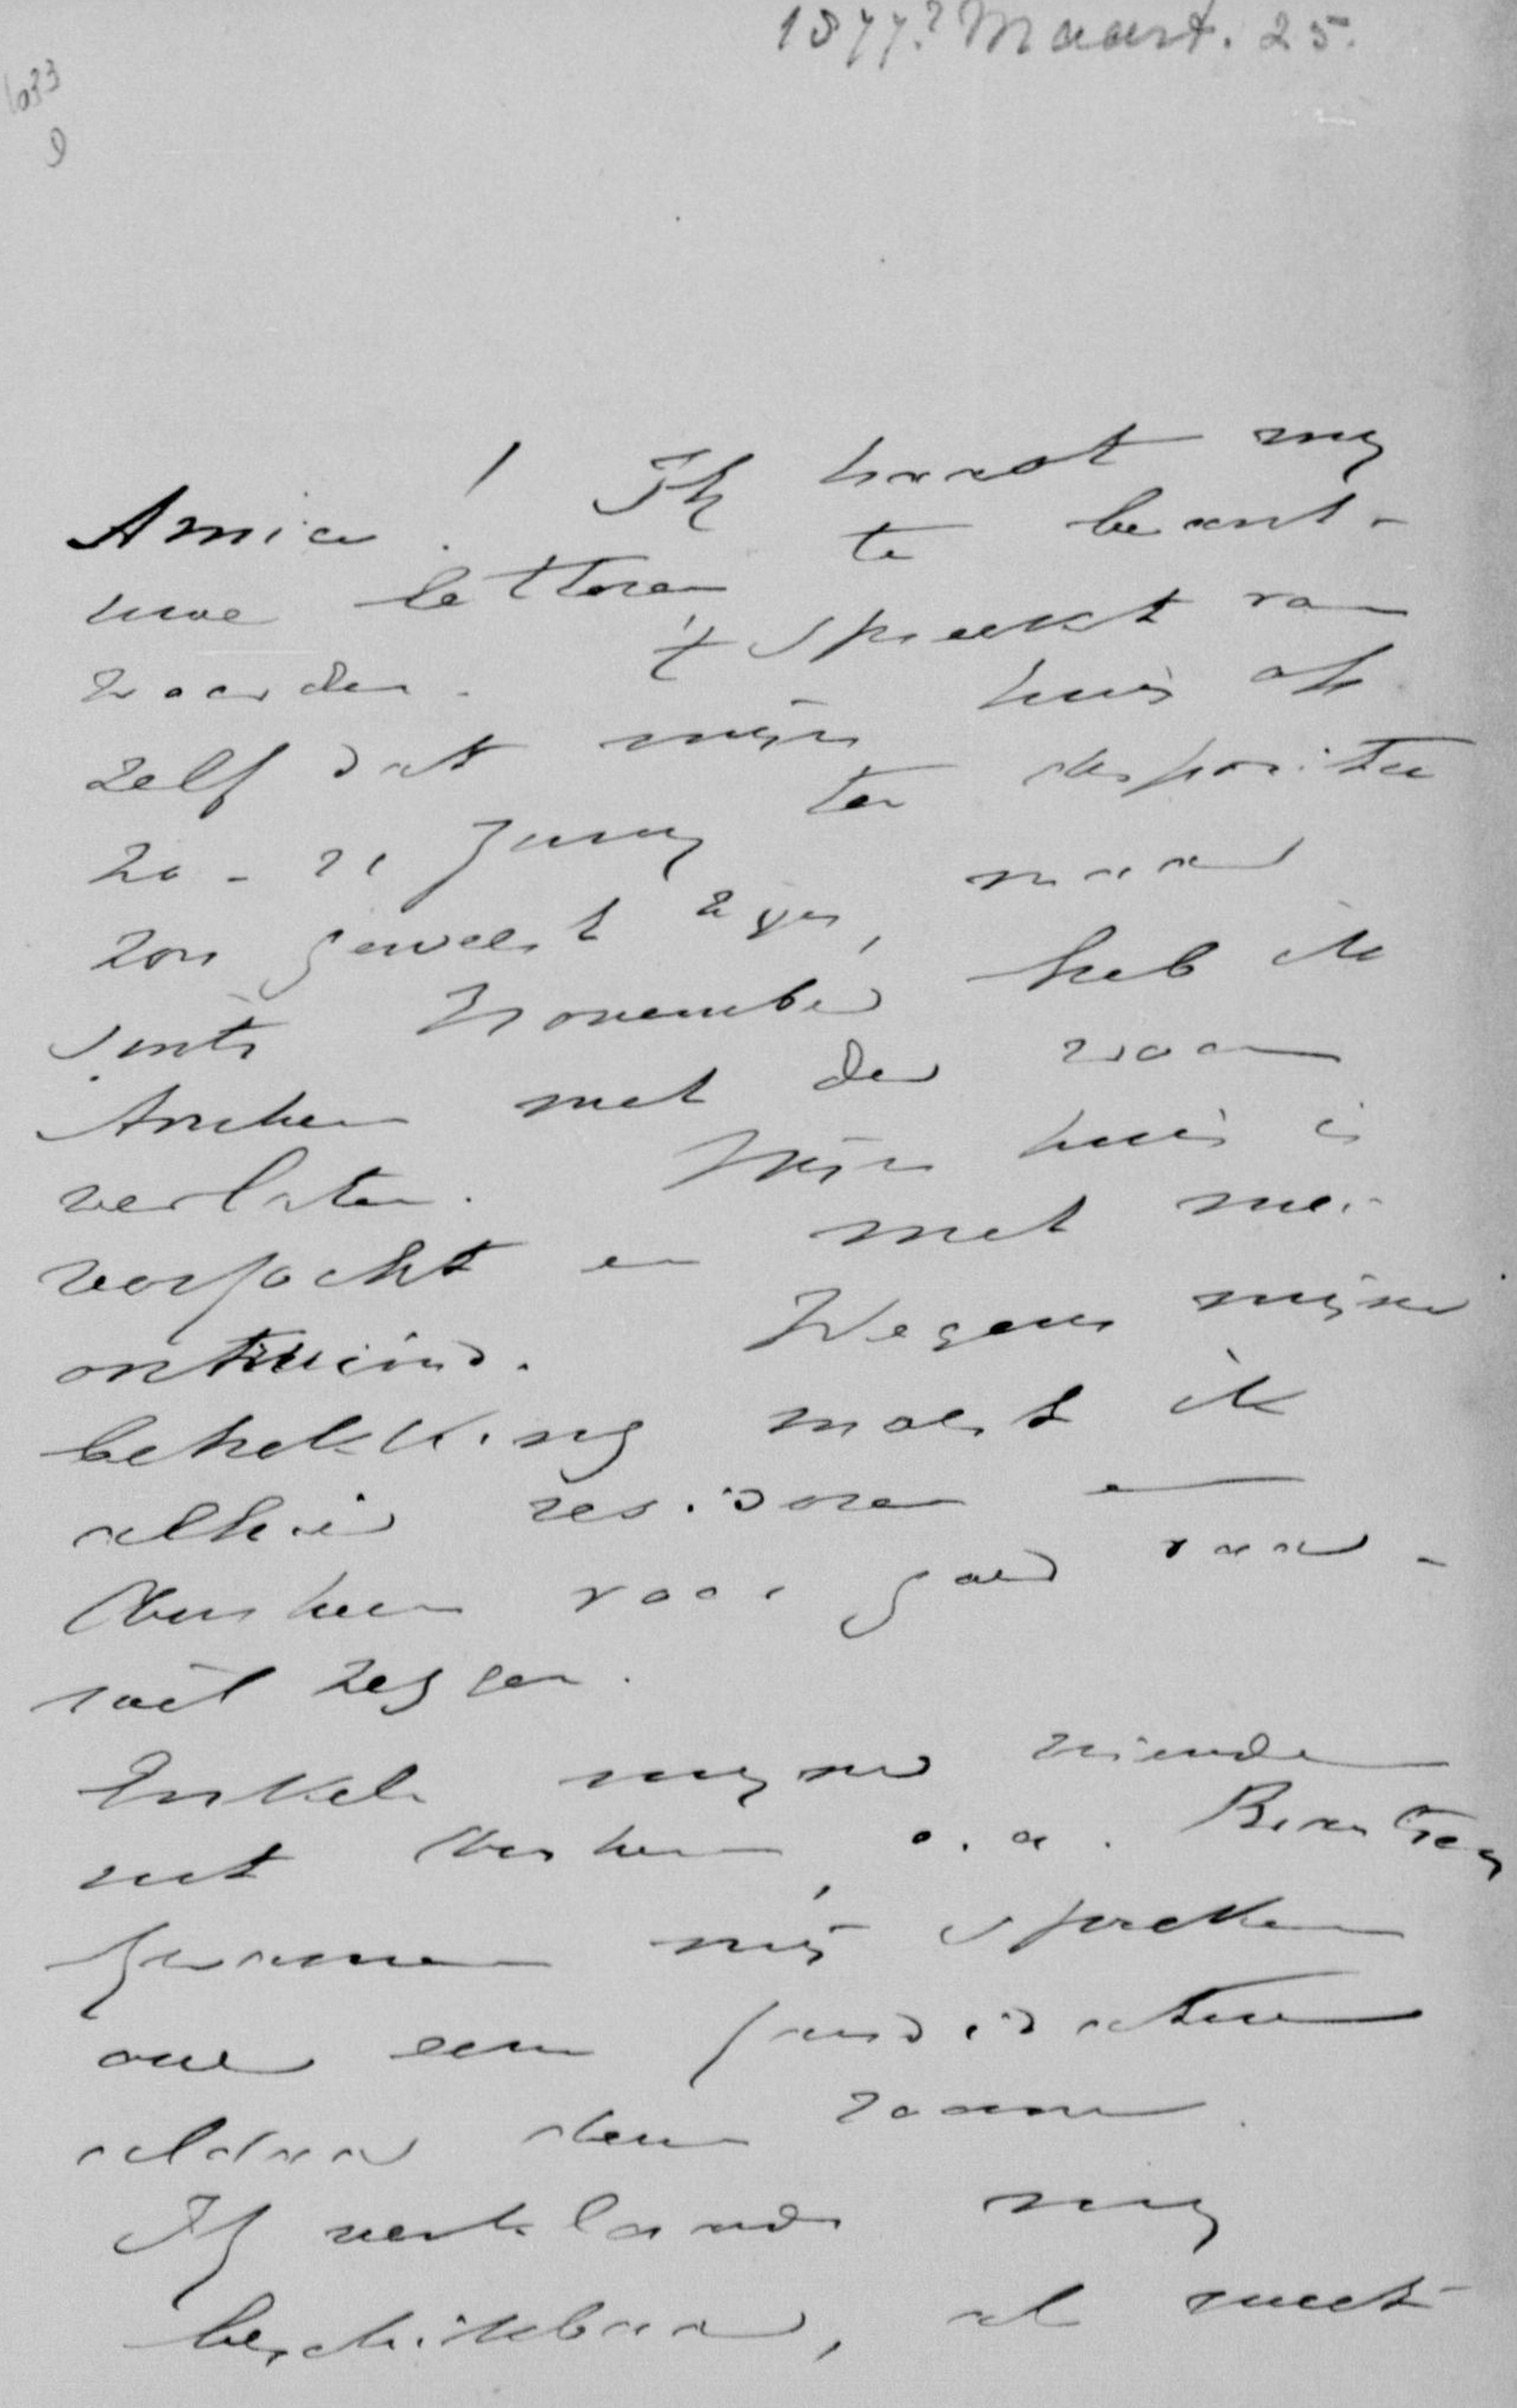 1877? Maart. 25.
1033
9
Amice! Ik haast mij
uwe letteren te beant-
woorden. 't Spreekt van
zelf dat mijn huis ook
20-21 Juny ter dispositie
zou geweest zijn, maar
sints November heb ik
Arnhem met der woon
verlaten. Mijn huis is
verpacht en met mei
ontruimd. Wegens mijne
betrekking moest ik
alhier resideren en
Arnhem voor goed vaar-
wel zeggen.
Enkele mijner vrienden
uit Arnhem, o.a.
kwamen mij spreken
over eene kandidatuur
aldaar
Ik verklaarde mij
beschikbaar, al moet